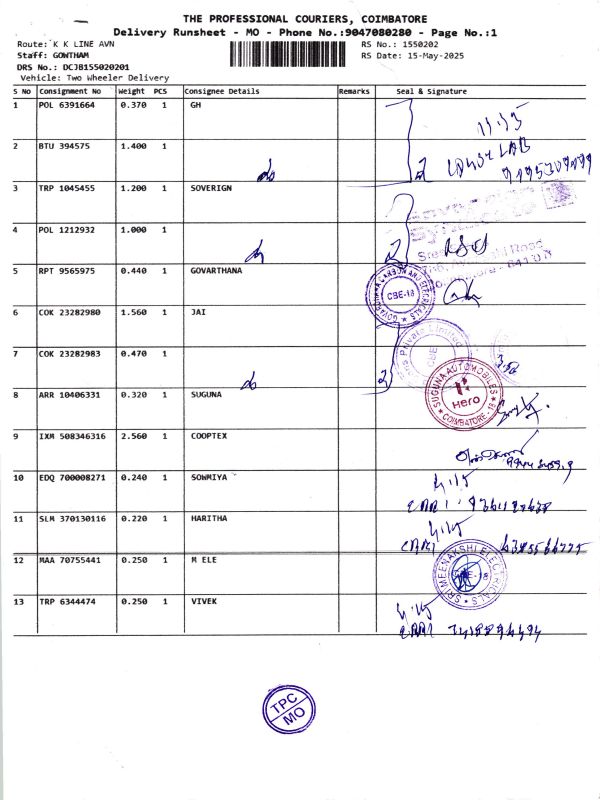 THE PROFESSIONAL COURIERS, COIMBATORE
Delivery Runsheet - MO - Phone No.:9047080280 - Page No.:1
Route: K K LINE AVN
RS No.: 1550202
Staff: GOWTHAM
RS Date: 15-May-2025
DRS No.: DCJB155020201
Vehicle: Two Wheeler Delivery
S No Consignment No Weight PCS Consignee Details Remarks Seal & Signature
1 POL 6391664 0.370 1 GH
2 BTU 394575 1.400 1
3 TRP 1045455 1.200 1 SOVERIGN
4 POL 1212932 1.000 1
5 RPT 9565975 0.440 1 GOVARTHANA
GOVARDHANA CARBON AND ELECTRICALS
CBE-18
6 COK 23282980 1.560 1 JAI
Private Limited
CBE
7 COK 23282983 0.470 1
8 ARR 10406331 0.320 1 SUGUNA
SUGUNA AUTOMOBILES
Hero
COIMBATORE - 18
9 IXM 508346316 2.560 1 COOPTEX
10 EDQ 700008271 0.240 1 SOWMIYA
11 SLM 370130116 0.220 1 HARITHA
12 MAA 70755441 0.250 1 M ELE
SRI MEENAKSHI ELECTRICALS
CBE-18
13 TRP 6344474 0.250 1 VIVEK
TPC
MO